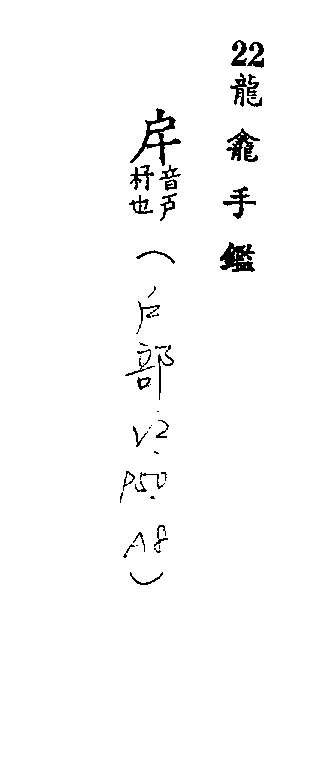 22龍龕手鑑
戽音戶杼也(户部V2.P50.A8)